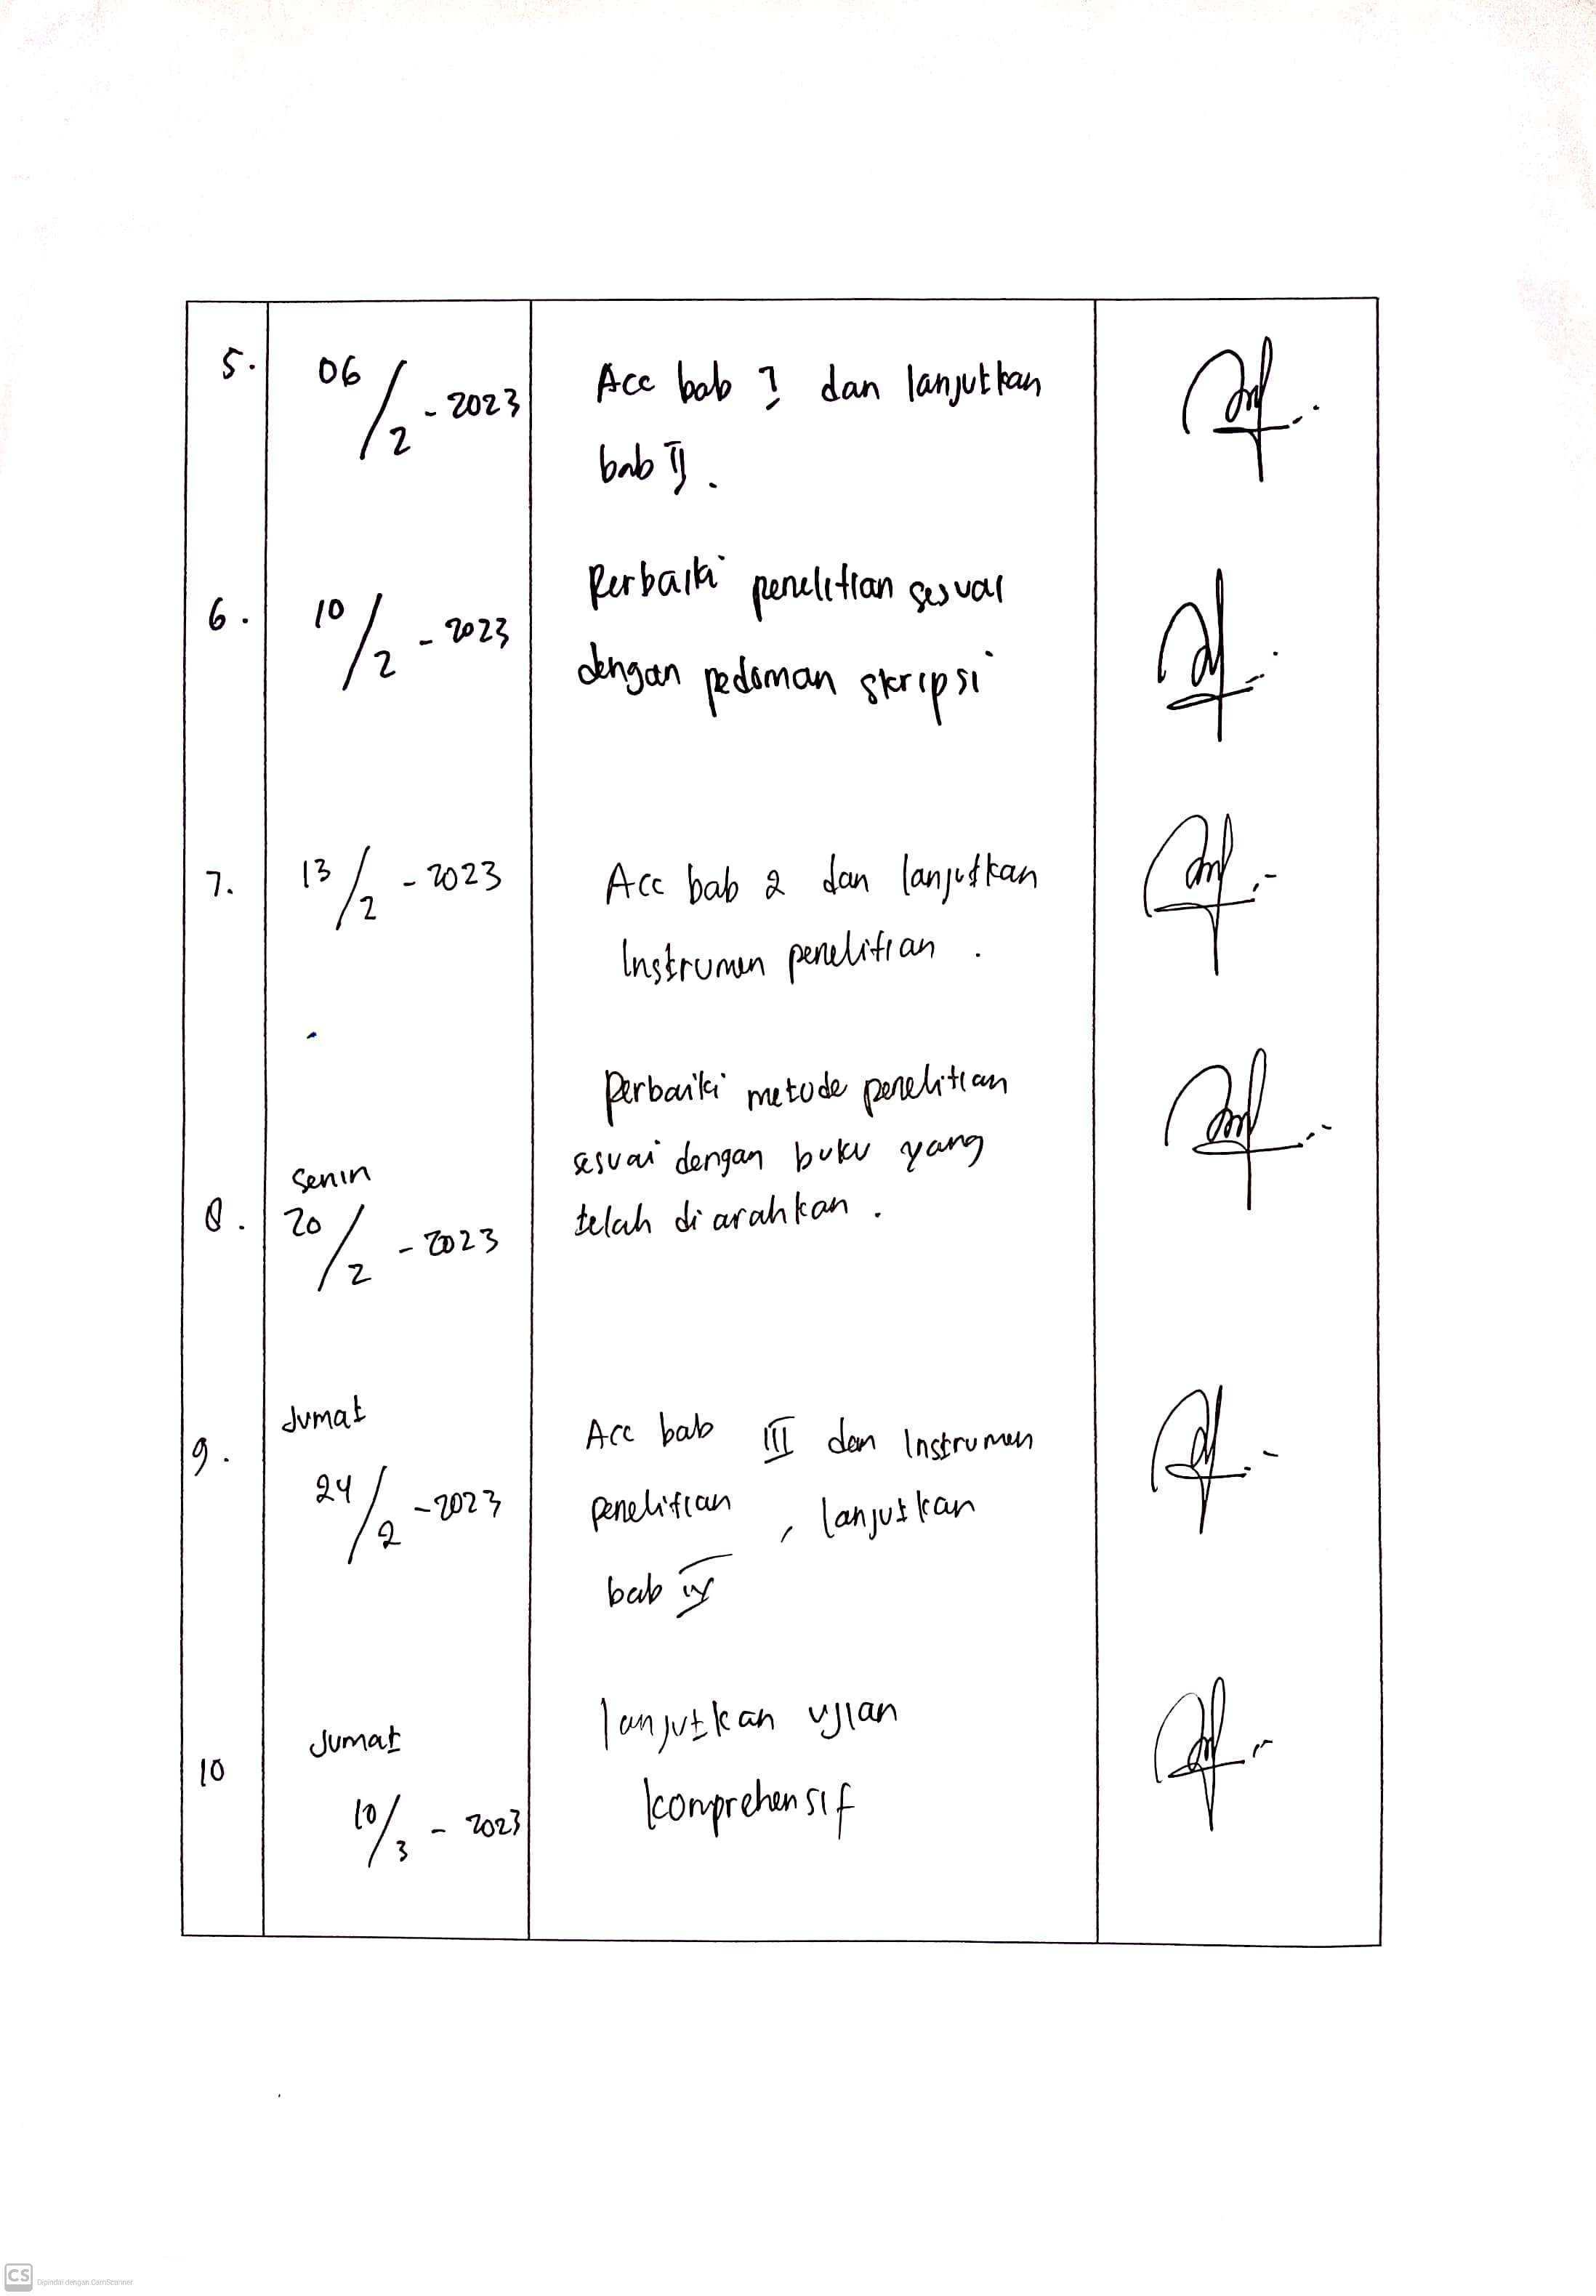 5. 06/2 - 2023 Acc bab I dan lanjutkan
bab II.
Perbaiki penelitian sesuai
6. 10/2 - 2023
dengan pedoman skripsi
7. 13/2 - 2023 Acc bab 2 dan lanjutkan
Instrumen penelitian.
Perbaiki metode penelitian
Senin
sesuai dengan buku yang
8. 20/2 - 2023
telah diarahkan.
Jumat
9. 24/2 - 2023
Acc bab III dan Instrumen
penelitian, lanjutkan
bab IV
Jumat
10 10/3 - 2023
lanjutkan ujian
komprehensif
CS Dipindai dengan CamScanner